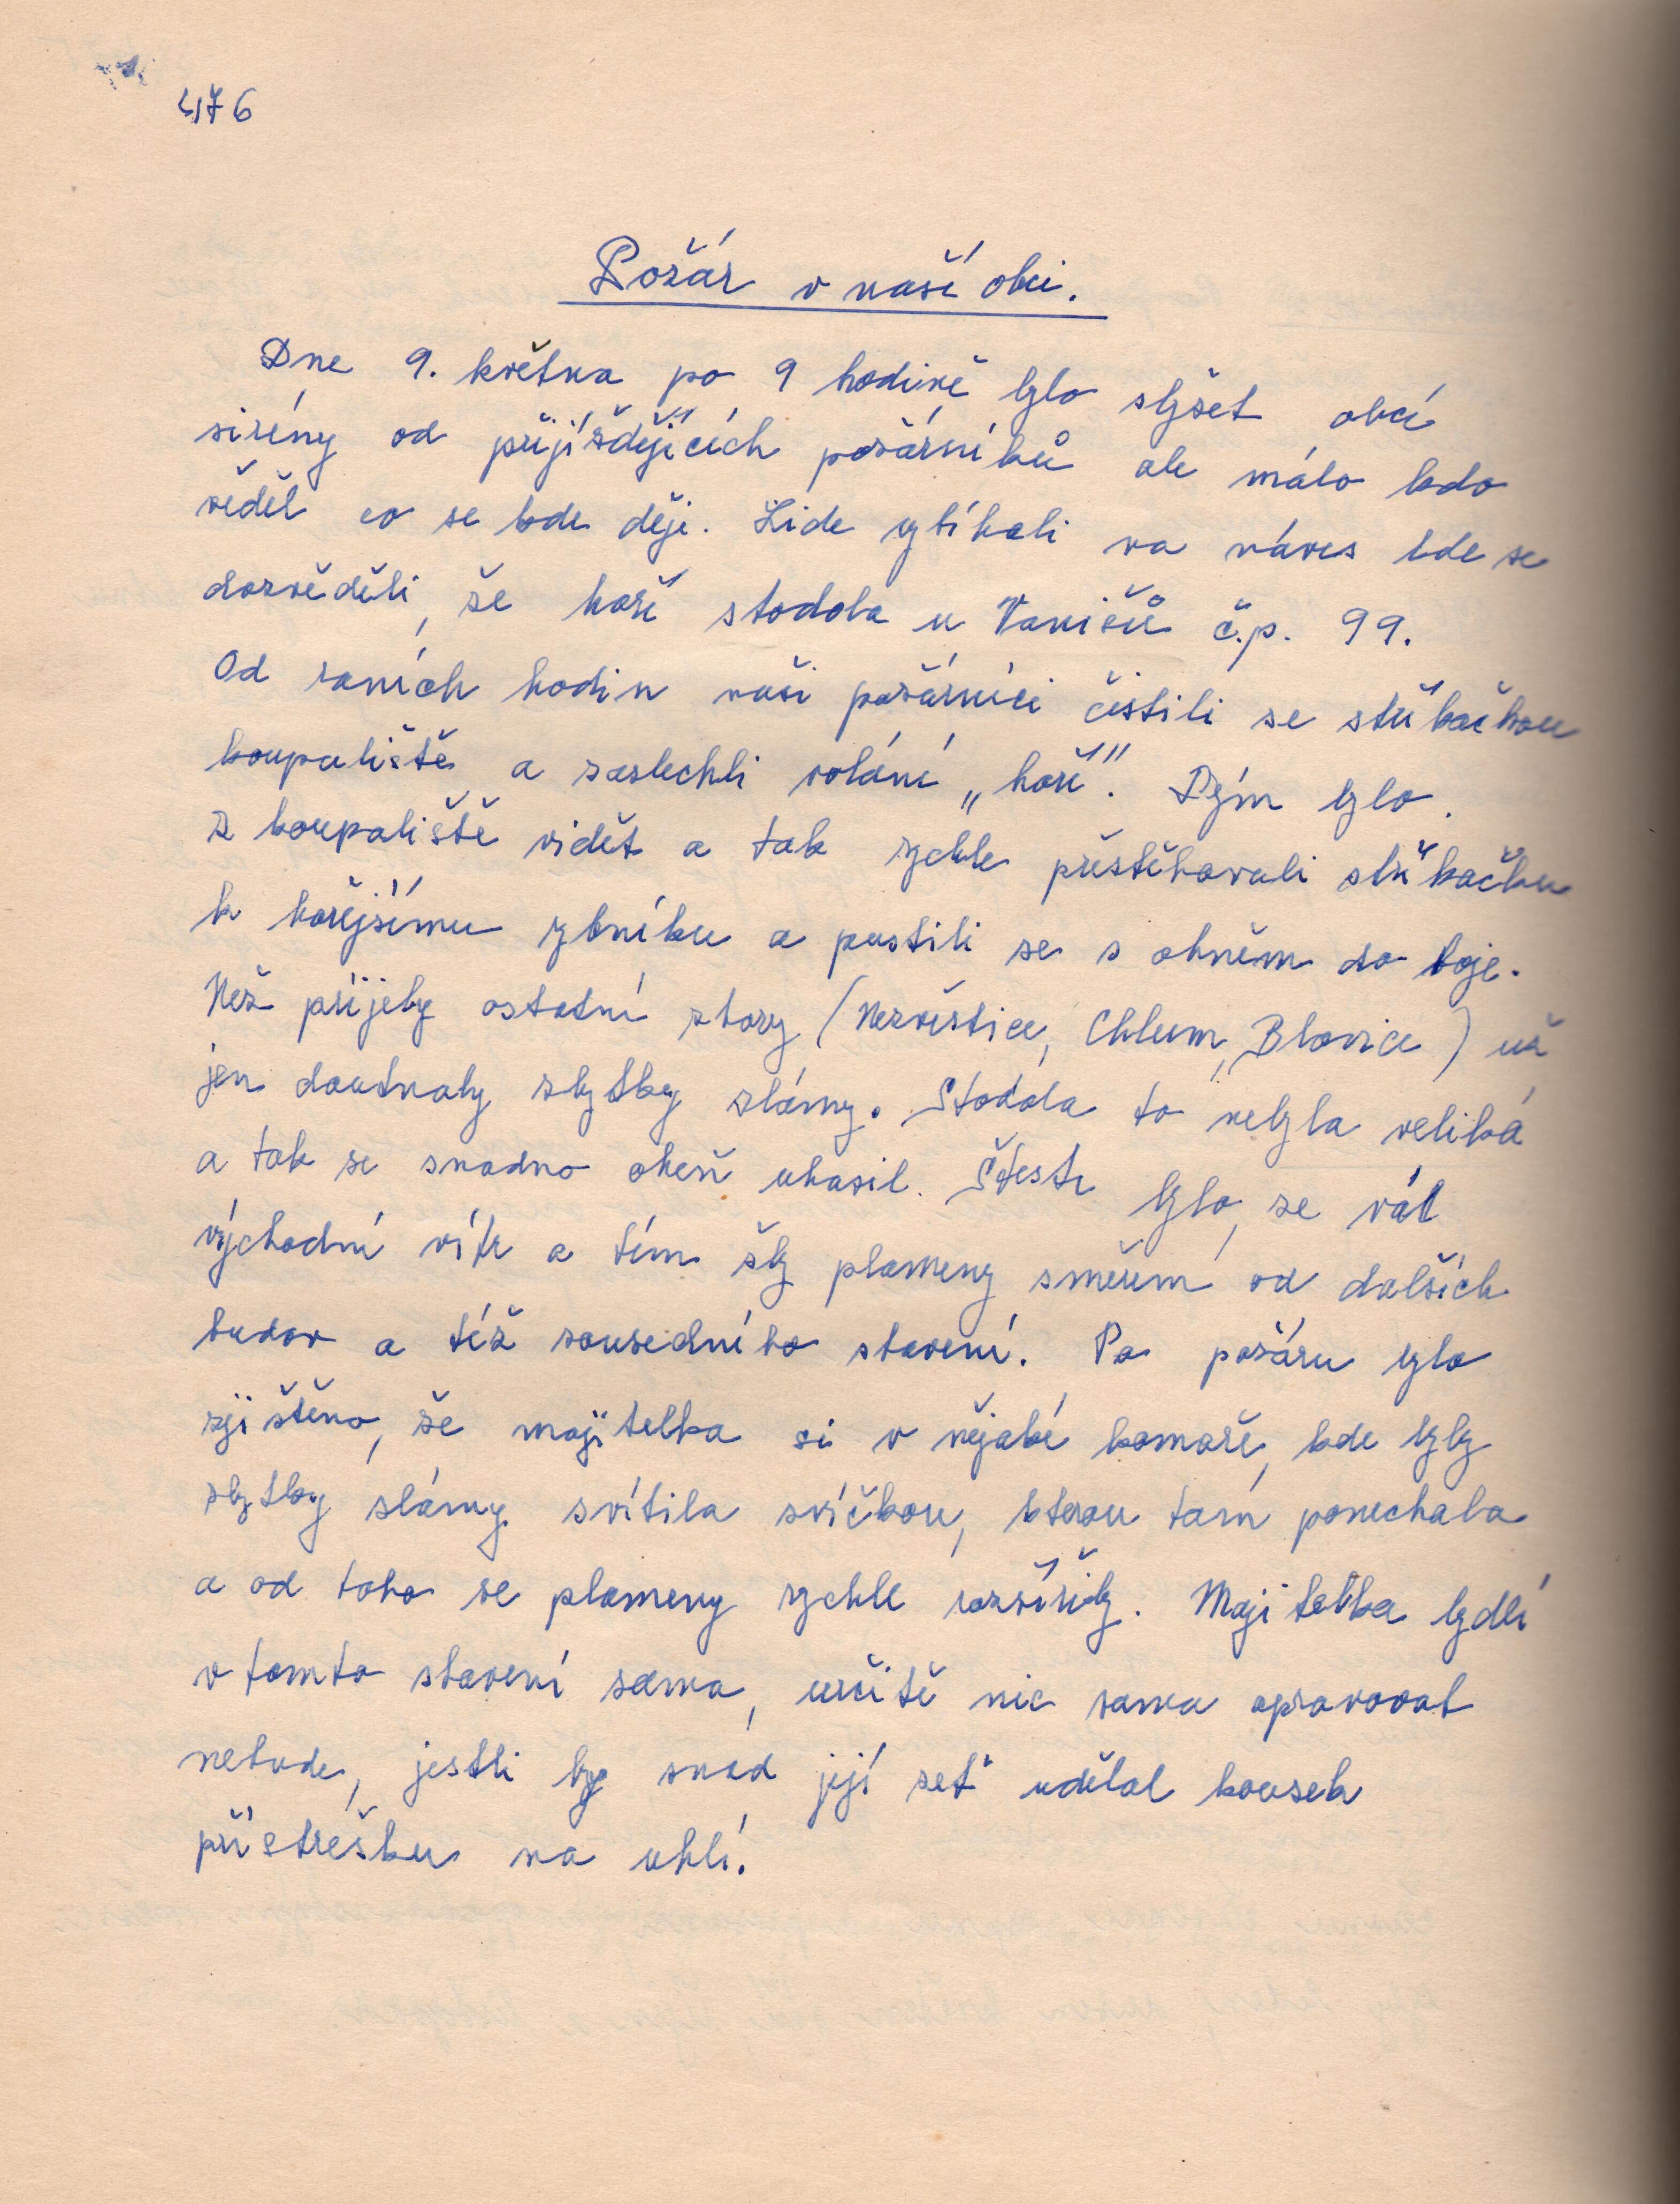 476
Požár v naší obci.
Dne 9. května po 9 hodině bylo slyšet obcí
sirény od přijíždějících požárníků ale málo kdo
věděl co se kde děje. Lide vybíhali na náves kde se
dozvěděli, že hoří stodola u Vaničů č.p. 99.
Od raních hodin naši požárníci čistili se stříkačkou
koupaliště a zaslechli volání „hoří". Dým bylo
z koupaliště vidět a tak rychle přestěhovali stříkačku
k hořejšímu rybníku a pustili se s ohněm do boje.
Než přijely ostatní sbory (Nezvěstice, Chlum, Blovice) už
jen doutnaly zbytky slámy. Stodola to nebyla veliká
a tak se snadno oheň uhasil. Štestí bylo, že vál
východní vítr a tím šly plameny směrem od dalších
budov a též sousedního stavení. Po požáru bylo
zjištěno, že majitelka si v nějaké komoře, kde byly
zbytky slámy svítila svíčkou, kterou tam ponechala
a od toho se plameny rychle rozšířily. Majitelka bydlí
v tomto stavení sama, určitě nic sama opravovat
nebude, jestli by snad její zeť udělal kousek
přístřešku na uhlí.